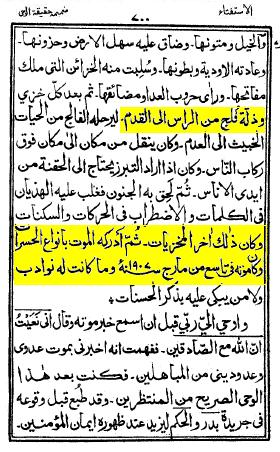 الاستفتاء
۷۰۰
ضميمه حقيقة الوحى
والخيل ومتونها۔ وضاق عليه سهل الارض وحزونها۔
وعادته الاودية وبطونها۔ وسُلبت منه الخزائن التى ملك
مفاتحها۔ وراى حروب العدا ومضائقها۔ ثم بعد كل خزى
وذلّة فُلج من الراس الى القدم۔ ليرحله الفالج من الحيات
الخبيث الى العدم۔ وكان ينقل من مكان الى مكان فوق
ركاب الناس۔ وكان اذا اراد التبرز يحتاج الى الحقنة من
ايدى الاناس۔ ثم لحق به الجنون فغلب عليه الهذيان
فى الكلمات۔ والاضطراب فى الحركات والسكنات
وكان ذلك اٰخر المخزيات۔ ثم ادركه الموت بأنواع الحسرات
وكان موته فى تاسع من مارج سنه ۱۹۰۷ وما كانت له نوادب
ولا من يبكى عليه بذكر الحسنات۔
واوحى الىّ ربّى قبل ان اسمع خبر موته وقال انى نعيت
ان اللّٰه مع الصّادقين۔ ففهمت انه اخبرنى بموت عدوى
وعدو دينى من المباهلين۔ فكنت بعد هٰذا
الوحى الصريح من المنتظرين۔ وقد طُبع قبل وقوعه
فى جريدة بدر والحكم ليزيد عند ظهوره ايمان المؤمنين۔